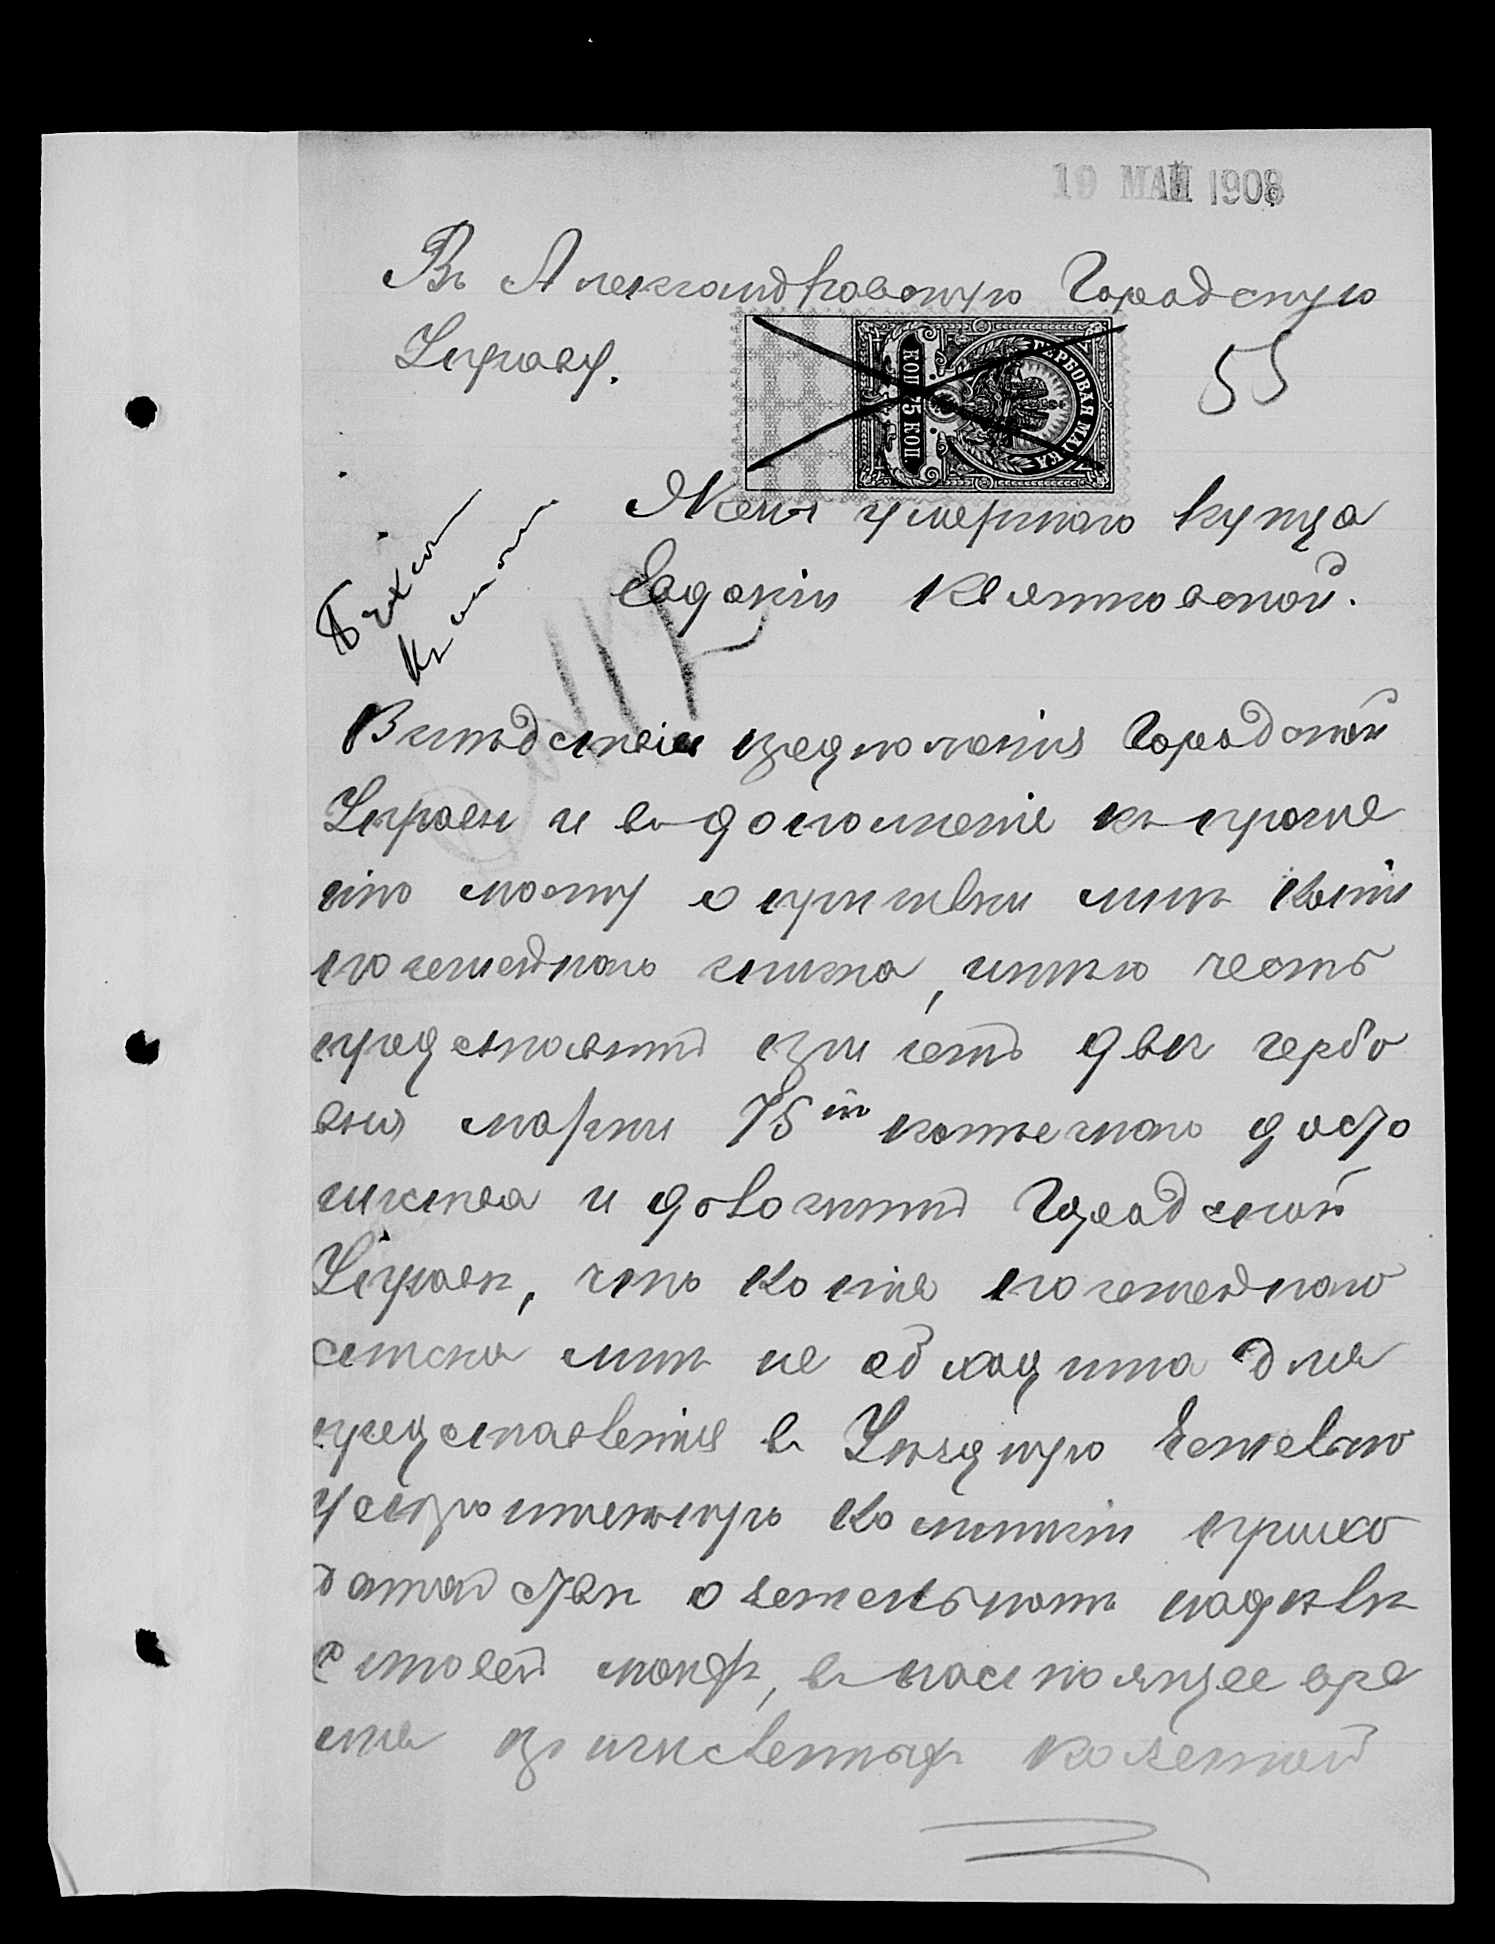 19 МАЙ 1908
Въ Александровскую Городскую
Управу.
55
ГЕРБОВАЯ МАРКА
КОП. 75 КОП.
Жены умершаго купца
Евдокіи Квятковской.
Вслѣдствіе предложенія Городской
Управы и въ дополненіе къ проше
нію моему о выдачѣ мнѣ копіи
посемейнаго списка, имѣю честь
представить при семъ двѣ гербо
выя марки 75ти копѣечнаго досто
инства и доложить Городской
Управѣ, что копія посемейнаго
списка мнѣ необходима для
представленія въ Уѣздную Землею
устроительную Коммисію при хо
датайствѣ о земельномъ надѣлѣ
семьей моей, въ настоящее вре
мя причисленныхъ козенной